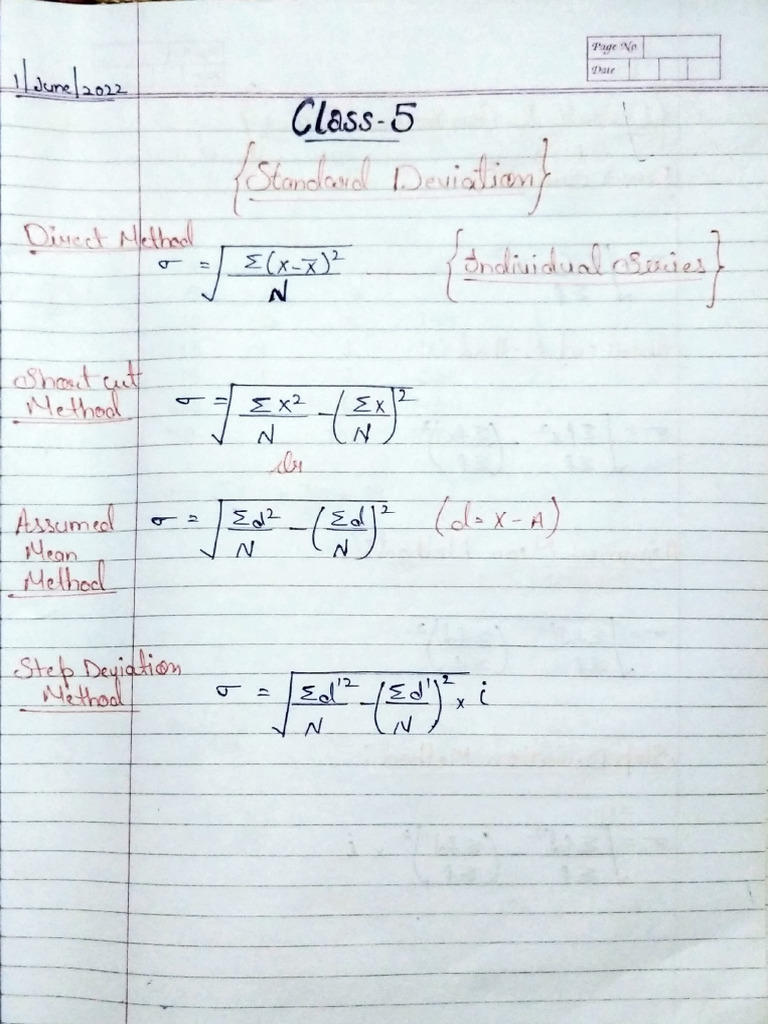 Page No
Date
1/June/2022
Class-5
{Standard Deviation}
Direct Method
σ = √(Σ(x-x̄)²/N) {Individual Series}
Short cut
Method
σ = √(Σx²/N - (Σx/N)²)
Or
Assumed
Mean
Method
σ = √(Σd²/N - (Σd/N)²) (d = x - A)
Step Deviation
Method
σ = √(Σd'²/N - (Σd'/N)²) × i